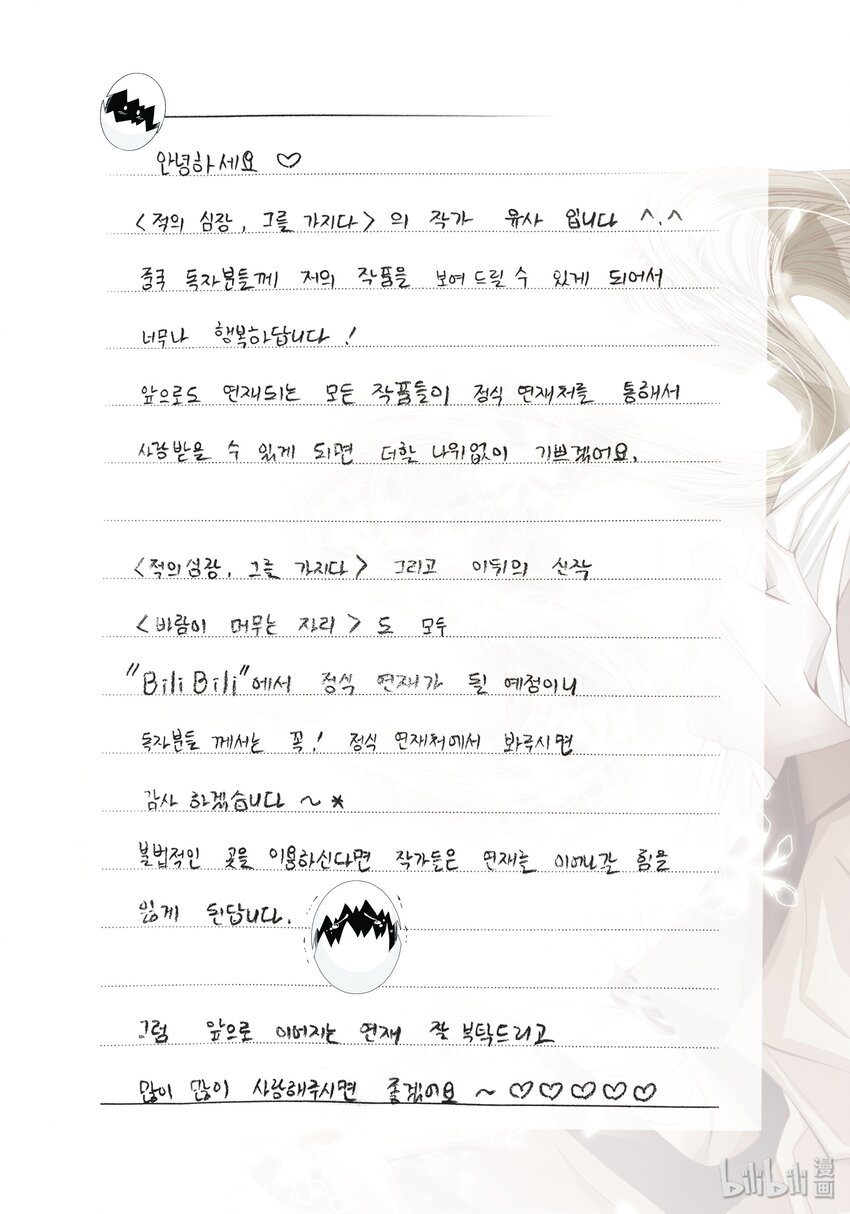 안녕하세요 ♡
<적의 심장, 그를 가지다> 의 작가 유사 입니다 ^.^
중국 독자분들께 저의 작품을 보여 드릴 수 있게 되어서
너무나 행복하답니다 !
앞으로도 연재되는 모든 작품들이 정식 연재처를 통해서
사랑받을 수 있게 되면 더할 나위없이 기쁘겠어요.
<적의심장, 그를 가지다> 그리고 이뒤의 신작
<바람이 머무는 자리> 도 모두
"BiliBili"에서 정식 연재가 될 예정이니
독자분들 께서는 꼭! 정식 연재처에서 봐주시면
감사 하겠습니다 ~ *
불법적인 곳을 이용하신다면 작가들은 연재를 이어나갈 힘을
잃게 된답니다.
그럼 앞으로 이어지는 연재 잘 부탁드리고
많이 많이 사랑해주시면 좋겠어요 ~ ♡♡♡♡♡
bilibili 漫画